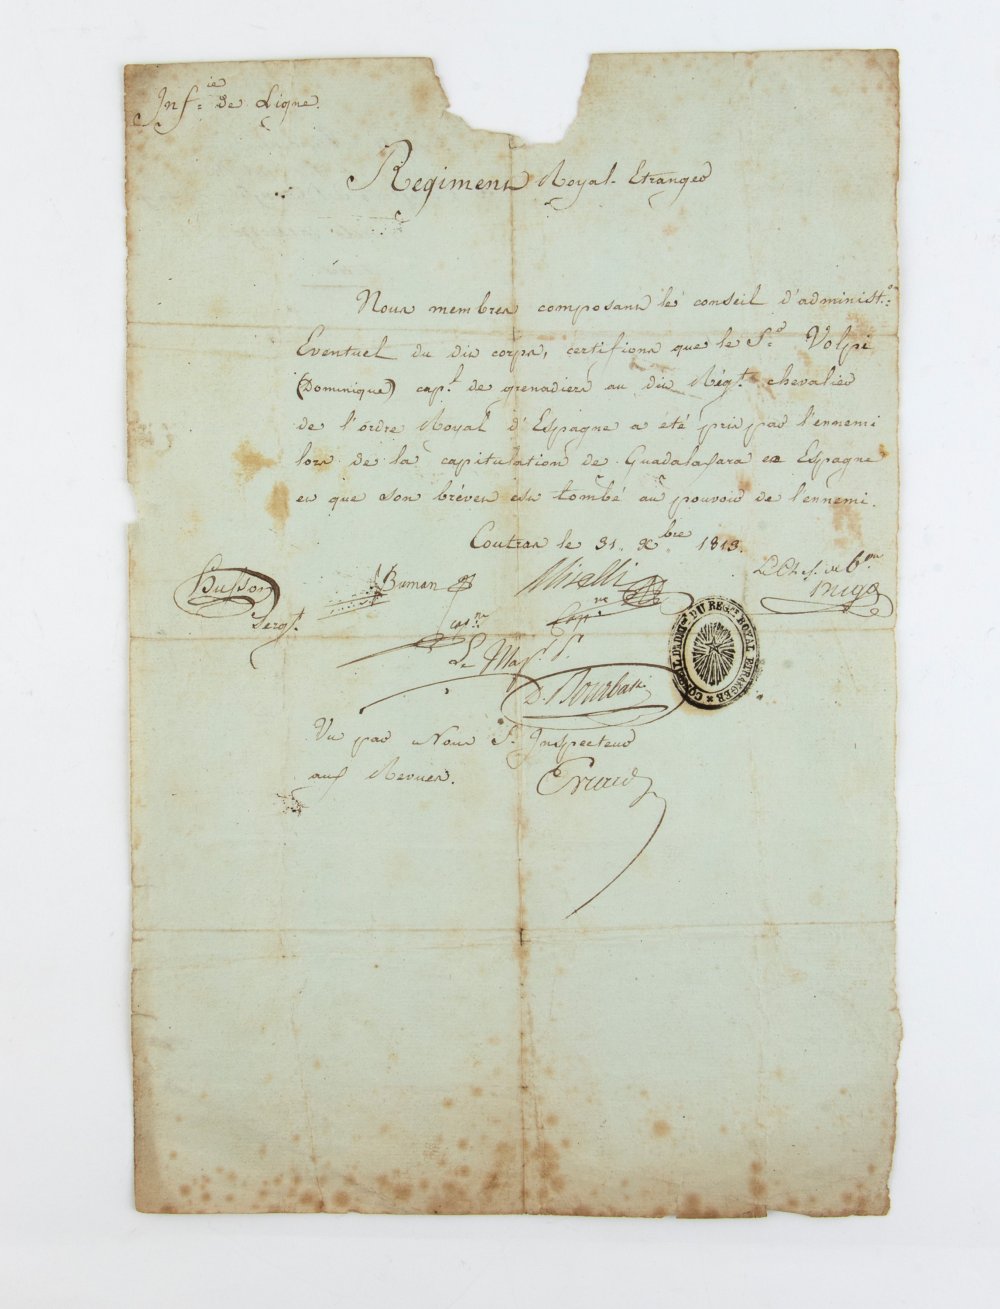 Inf.ie de Ligne.
Regiment Royal-Etranger
Nous membres composant le conseil d'administ.on
Eventuel du dit corps, certifions que le S.r Volpi
(Dominique) cap.t de grenadiers au dit Rég.t chevalier
de l'ordre Royal d'Espagne a été pris par l'ennemi
lors de la capitulation de Guadalaxara en Espagne
et que son brévet est tombé au pouvoir de l'ennemi.
Coutras le 31. Xbre 1813.
Husson
Serg.t
Buman
Mirelli
Le Chef de b.on
Le Maj.r
D. Bourbaki
CONSEIL D'ADM.on DU REG.t ROYAL ETRANGER
Vu par Nous S. Inspecteur
aux Revues.